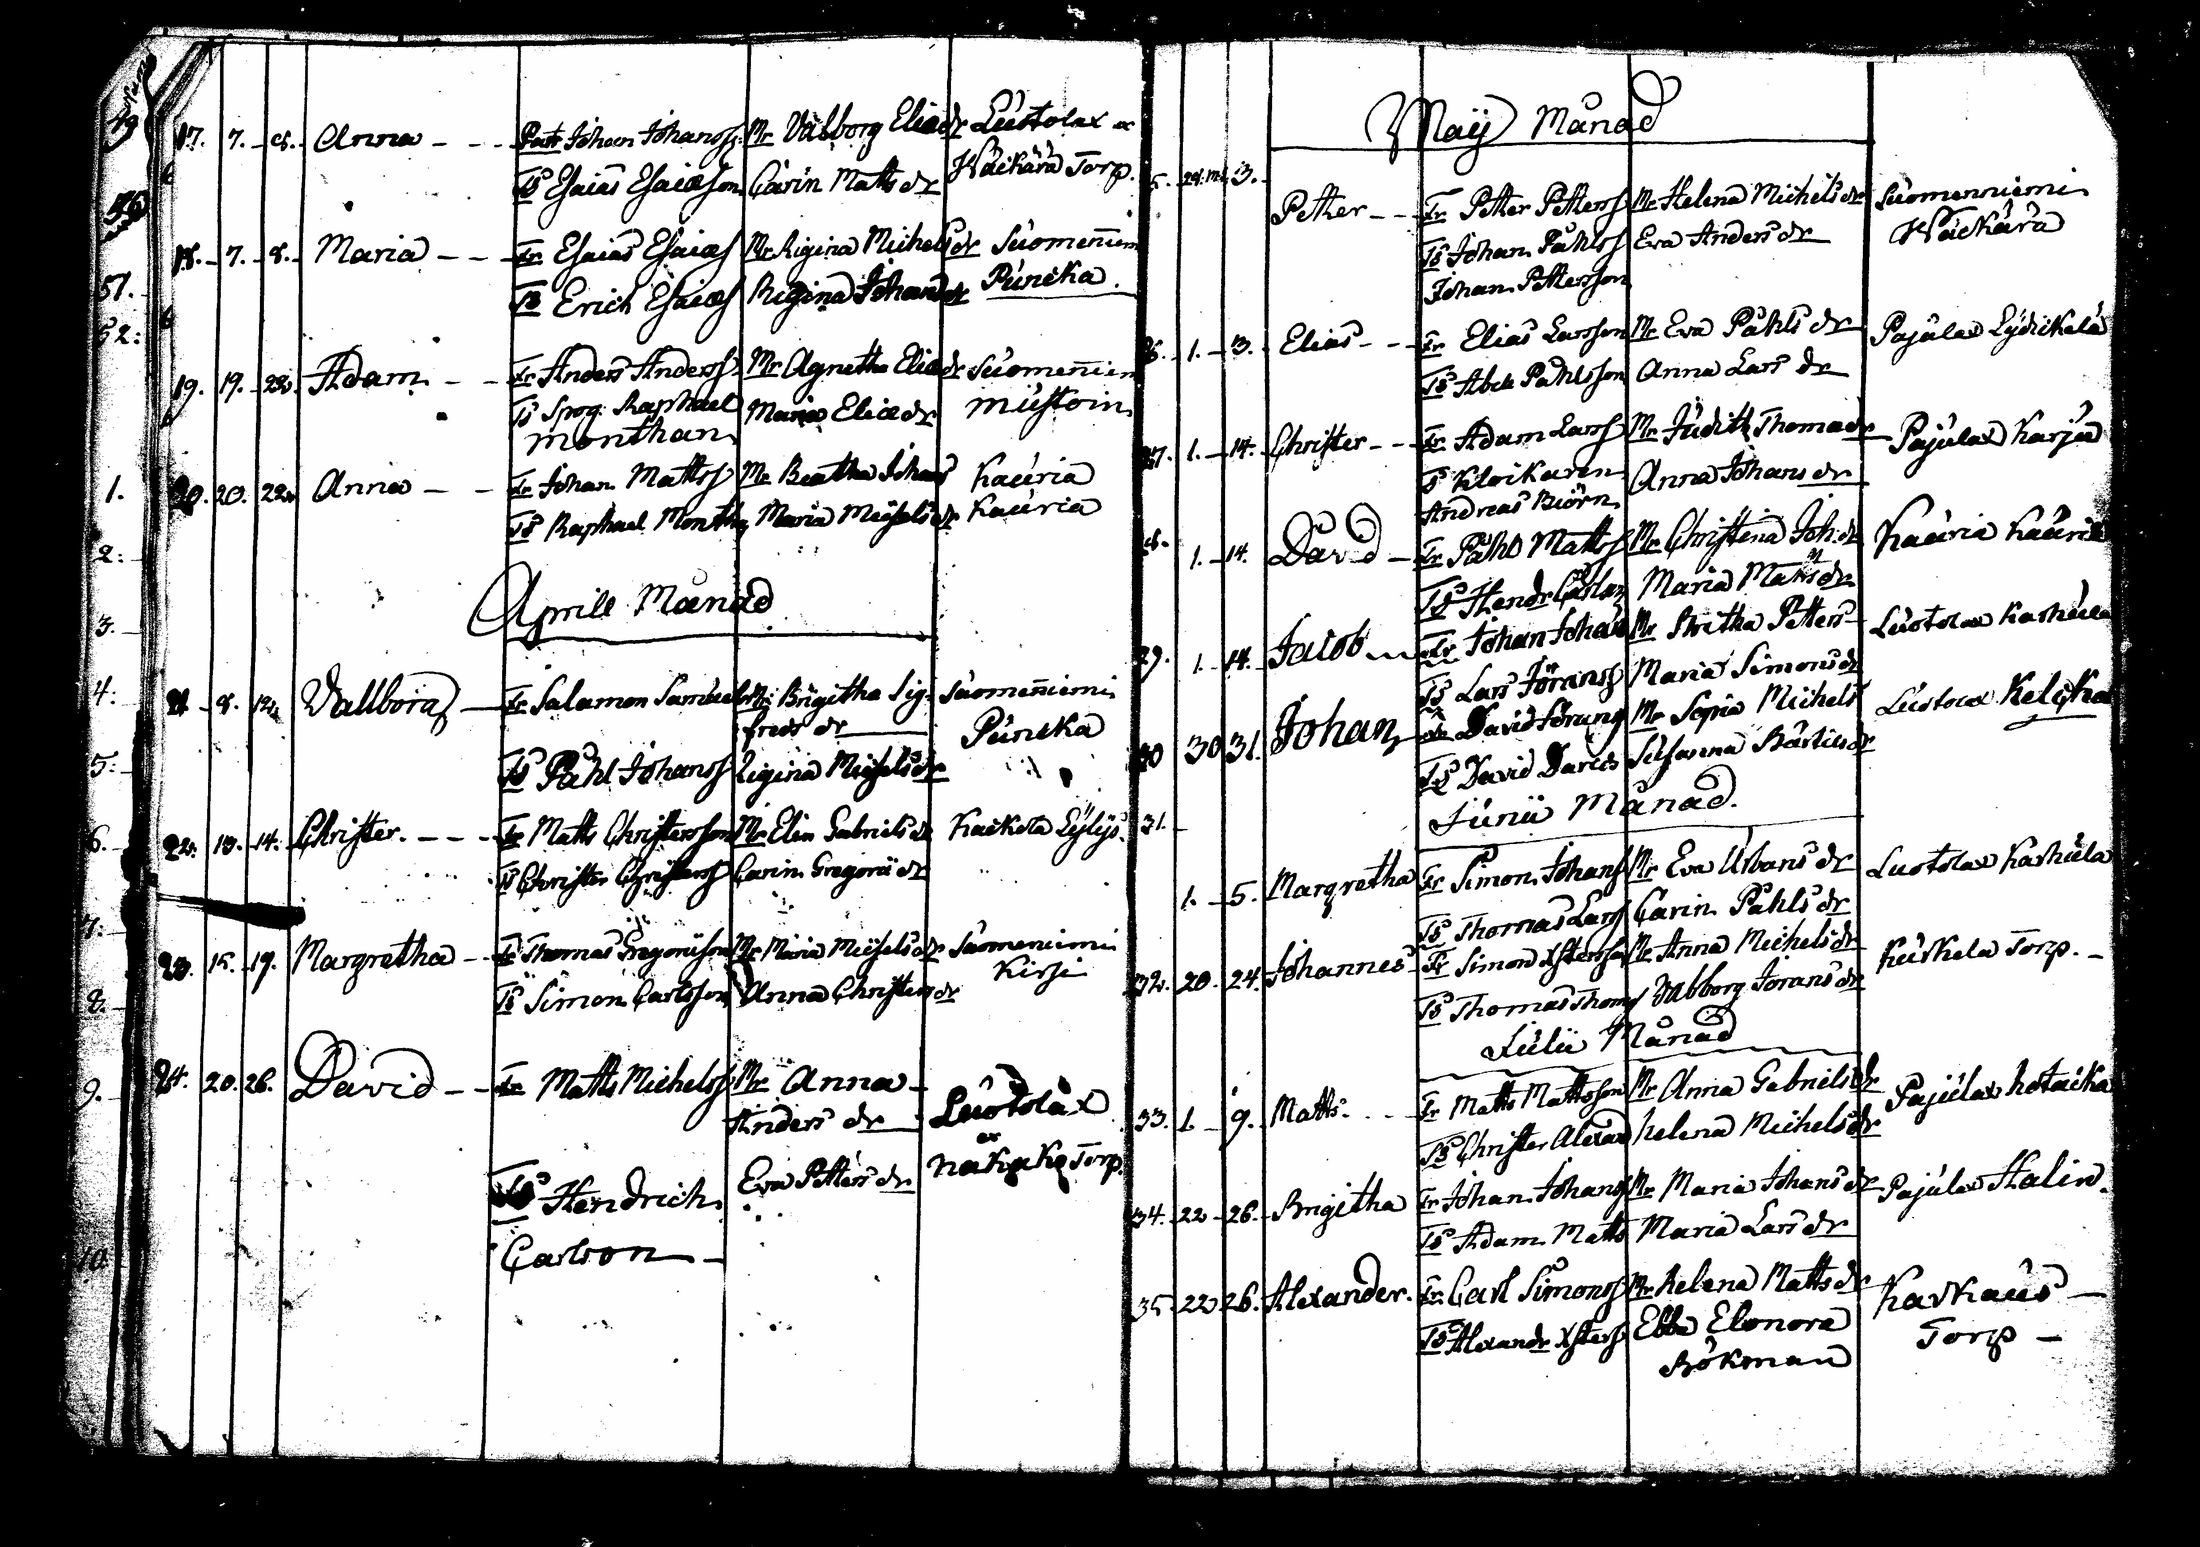 17. 7. 8. Anna - - - Patr Johan Johanss. Mr Valborg Eliædr Luotolax ex
Ts Esaias Esaiæson Carin Mattsdr Käckärä Torp.
18. 7. 8. Maria - - - Fr Esaias Esaiæss Mr Rigina Michelsdr Suomeniem
Ts Erich Esaiæss Rigina Johansdr Puncka.
19. 19. 22. Adam - - Fr Anders Anderss Mr Agnetha Eliædr Suomeniem
Ts Spog. Raphael Maria Eliædr Mustoin
Monthan
20. 20. 22. Anna - - Fr Johan Mattss Mr Beatha Johans Kauria
Ts Raphael Month Maria Michelsdr Kauria
Aprill Månad
21 - 8. 12. Vallborg - Fr Salamon Samuels Mr Brigitha Sig- Suomeniemi
freds dr Puncka
Ts Påhl Johanss Rigina Michelsdr
22. 13. 14. Christer. - - - Fr Matts Christersson Mr Elin Gabrielsdr Kaikola Lylys.
Ts Christer Christerss Carin Gregorii dr
23. 15. 19. Margretha - - Fr Thomas Gregorisson Mr Maria Michelsdr Suomeniemi
Kirsi
Ts Simon Carlsson Anna Christersdr
24. 20. 26. David - - Fr Matts Michelss Mr Anna -
Anders dr Luotolax
ex
Ts Hendrich Eva Petters dr Torp.
Carlson -
Maij Månad
3. Petter - - Fr Petter Petterss Mr Helena Michelsdr Suomenniemi
Ts Johan Påhlss Eva Anders dr Käckärä
Johan Pettersson
26. 1. - 3. Elias - - - Fr Elias Larsson Mr Eva Påhls dr Pajulax Lydikelä
Ts Abel Påhlsson Anna Lars dr
27. 1. - 14. Christer - - Fr Adam Larss Mr Judith Thomædr Pajulax Karju
Ts Klockaren Anna Johans dr
Andreas Biörn
28. 1. - 14. David - Fr Påhl Mattss Mr Christina Joh:dr Kauria Kauria
Ts Hendr Carlss Maria Matts dr
29. 1. - 14. Jacob - Fr Johan Johans Mr Britha Petters- Luotolax Kashula
Ts Lars Jöranss Maria Simonsdr
30 30 31. Johan - Fr David Mr Sophia Michels Luotolax
Ts David Davids Susanna Bertilsdr
31. -
Junii Månad.
1. - 5. Margretha Fr Simon Johanss Mr Eva Urbans dr Luotolax Kashula
Ts Thomas Larss Carin Påhls dr
32. 20. 24. Johannes Fr Simon Xstersson Mr Anna Michelsdr Kuskela Torp. -
Ts Thomas Thomæs Valborg Jöransdr
Julii Månad
33. 1. 9. Matts. - - Fr Matts Mattsson Mr Anna Gabrielsdr Pajulax Hotacka
Ts Christer Alexand Helena Michelsdr
34. 22 - 26. Brigitha Fr Johan Johanss Mr Maria Johans dr Pajulax Halin.
Ts Adam Matts Maria Lars dr
35. 22 - 26. Alexander. Fr Carl Simonss Mr Helena Matts dr Karhaus -
Ts Alexandr Xsterss Ebba Elonora Torp -
Bökman